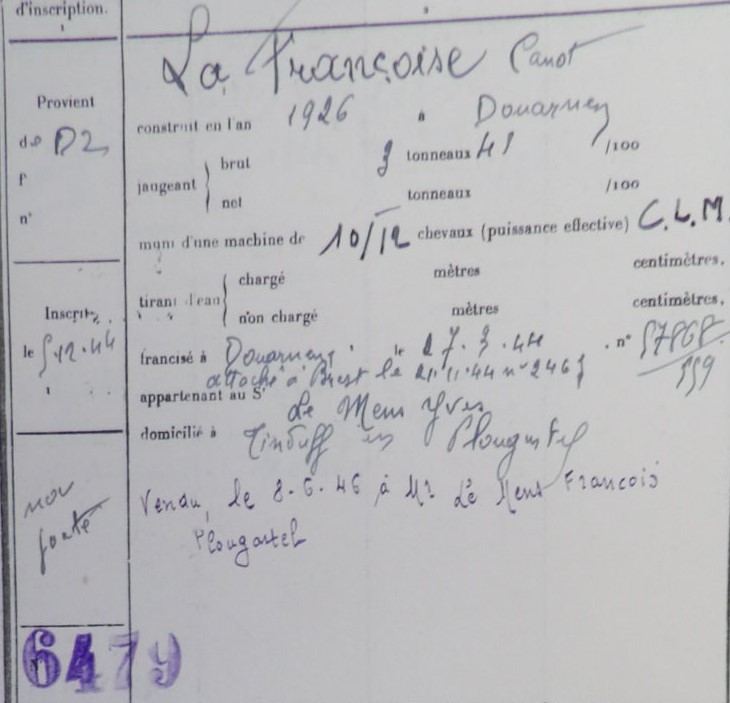 d'inscription.
1
2
La Françoise Canot
Provient
de DZ
f°
n°
construit en l'an 1926 à Douarnenez
jaugeant { brut 3 tonneaux 41 /100
net tonneaux /100
muni d'une machine de 10/12 chevaux (puissance effective) C.L.M.
tirant d'eau { chargé mètres centimètres,
non chargé mètres centimètres,
Inscrit
le 5.12.44
francisé à Douarnenez le 27.3.44 n° 57868
559
attaché à Brest le 21.11.44 n° 2465
appartenant au Sr Le Mens Yves
domicilié à Tinduff en Plougastel
non
ponté
Vendu, le 8.6.46 à Mr Le Mens François
Plougastel
6479